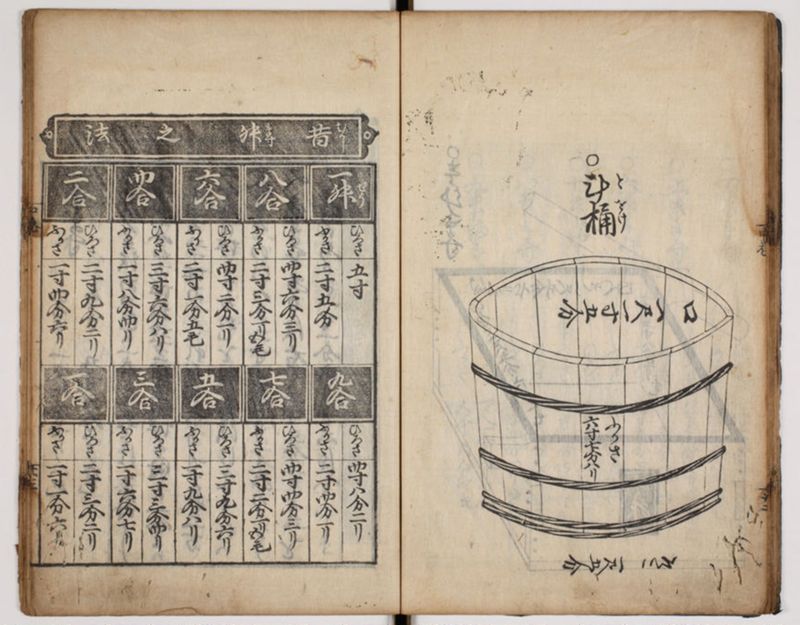 ○斗桶
とをけ
口一尺一寸五分
ふかさ
六寸七分八リ
そこ一尺五分
昔舛之法
一舛
ひろさ 五寸
ふかさ 二寸五分
八合
ひろさ 四寸六分三リ
ふかさ 二寸三分一リ五毛
六合
ひろさ 四寸二分一リ
ふかさ 二寸一分五毛
四合
ひろさ 三寸六分八リ
ふかさ 一寸八分四リ
二合
ひろさ 二寸九分二リ
ふかさ 一寸四分六リ
九合
ひろさ 四寸八分二リ
ふかさ 二寸四分一リ
七合
ひろさ 四寸四分三リ
ふかさ 二寸二分一リ五毛
五合
ひろさ 三寸九分六リ
ふかさ 一寸九分八リ
三合
ひろさ 三寸三分四リ
ふかさ 一寸六分七リ
一合
ひろさ 二寸三分二リ
ふかさ 一寸一分六リ